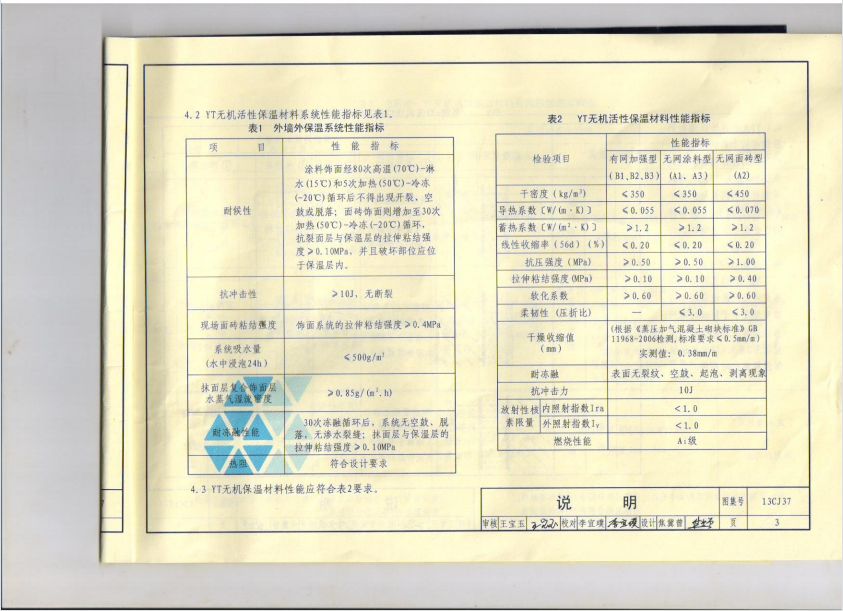 4.2 YT无机活性保温材料系统性能指标见表1。
表1 外墙外保温系统性能指标
项 目 性 能 指 标
耐候性
涂料饰面经80次高温(70℃)-淋
水(15℃)和5次加热(50℃)-冷冻
(-20℃)循环后不得出现开裂、空
鼓或脱落；面砖饰面则增加至30次
加热(50℃)-冷冻(-20℃)循环，
抗裂面层与保温层的拉伸粘结强
度≥0.10MPa，并且破坏部位应位
于保温层内。
抗冲击性 ≥10J，无断裂
现场面砖粘结强度 饰面系统的拉伸粘结强度≥0.4MPa
系统吸水量
(水中浸泡24h)
≤500g/m²
抹面层复合饰面层
水蒸气湿流密度
≥0.85g/(m².h)
耐冻融性能
30次冻融循环后，系统无空鼓、脱
落，无渗水裂缝；抹面层与保温层的
拉伸粘结强度≥0.10MPa
热阻 符合设计要求
4.3 YT无机保温材料性能应符合表2要求。
表2 YT无机活性保温材料性能指标
检验项目
性能指标
有网加强型 无网涂料型 无网面砖型
(B1、B2、B3) (A1、A3) (A2)
干密度(kg/m³) ≤350 ≤350 ≤450
导热系数〔W/(m·K)〕 ≤0.055 ≤0.055 ≤0.070
蓄热系数〔W/(m²·K)〕 ≥1.2 ≥1.2 ≥1.2
线性收缩率(56d)(%) ≤0.20 ≤0.20 ≤0.20
抗压强度(MPa) ≥0.50 ≥0.50 ≥1.00
拉伸粘结强度(MPa) ≥0.10 ≥0.10 ≥0.40
软化系数 ≥0.60 ≥0.60 ≥0.60
柔韧性(压折比) — ≤3.0 ≤3.0
干燥收缩值
(mm)
(根据《蒸压加气混凝土砌块标准》GB
11968-2006检测,标准要求≤0.5mm/m)
实测值：0.38mm/m
耐冻融 表面无裂纹、空鼓、起泡、剥离现象
抗冲击力 10J
放射性核
素限量
内照射指数Ira <1.0
外照射指数Iγ <1.0
燃烧性能 A₁级
说 明
图集号 13CJ37
审核 王宝玉 校对 李宜璞 设计 焦冀曾 页 3